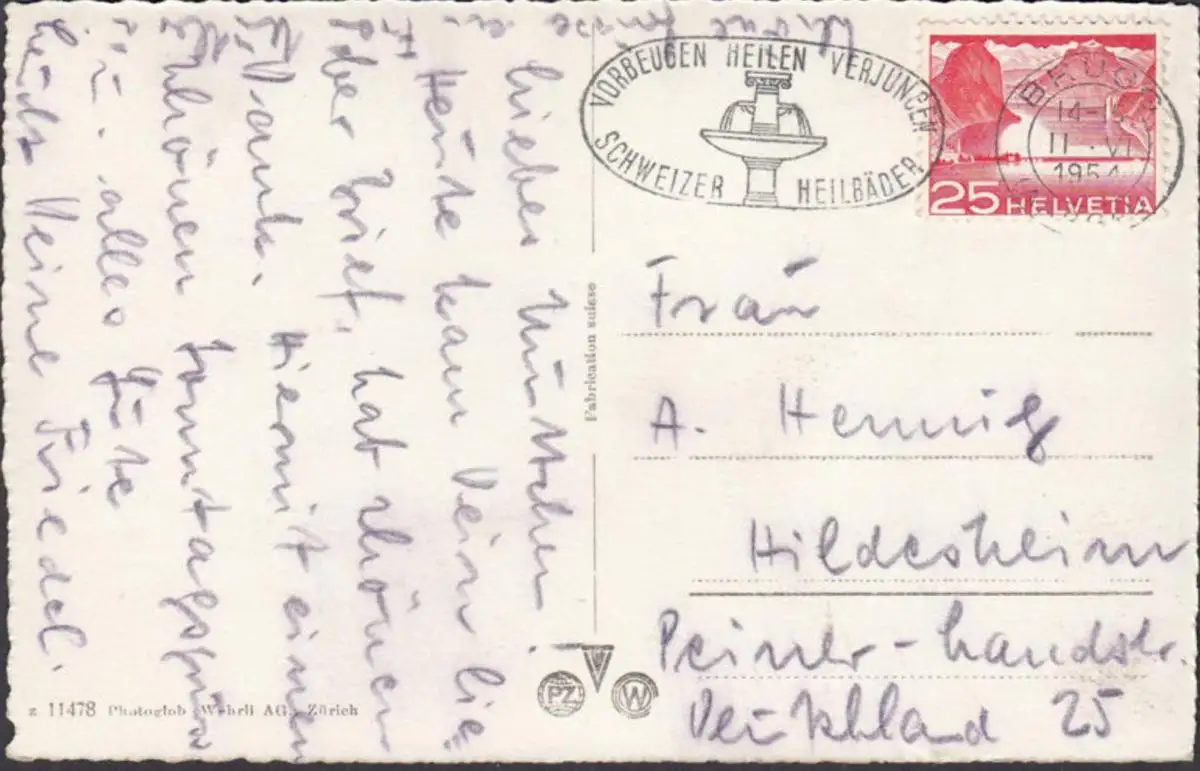 Liebes Muttchen.
Heute kam Dein lie-
ber Brief, hab schönen
Dank. Hiermit einen
schönen Sonntagsgruss
alles Gute
Deine Friedel.
VORBEUGEN HEILEN VERJUNGEN
SCHWEIZER HEILBÄDER
BRUGG
14-
11. VI
1954
25 HELVETIA
Fabrication suisse
Frau
A. Hennig
Hildesheim
Peiner-Landstr.
Deutschland 25
PZ W
z 11478 Photoglob-Wehrli AG, Zürich